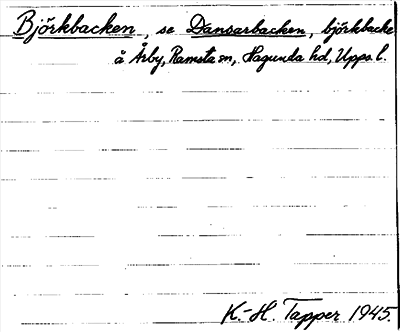 Björkbacken, se Dansarbacken, björkbacke
å Årby, Ramsta sn, Hagunda hd, Upps. l.
K.-H. Tapper 1945.